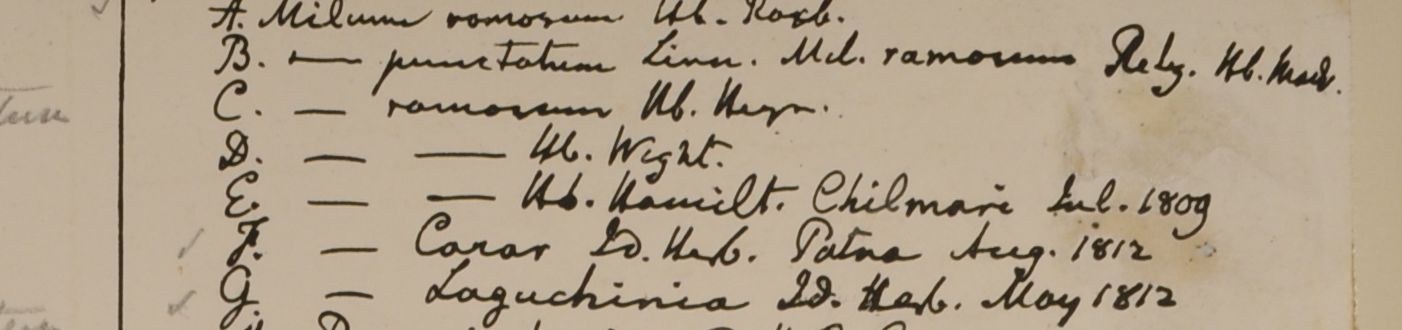 A. Milium ramosum Hb. Roxb.
B. — punctatum Linn. Mil. ramosum Retz. Hb. Madr.
C. — ramosum Hb. Heyn.
D. — — Hb. Wight.
E. — — Hb. Hamilt. Chilmari Jul. 1809
F. — Corar Id. Herb. Patna Aug. 1812
G. — Laguchinia Id. Herb. May 1812